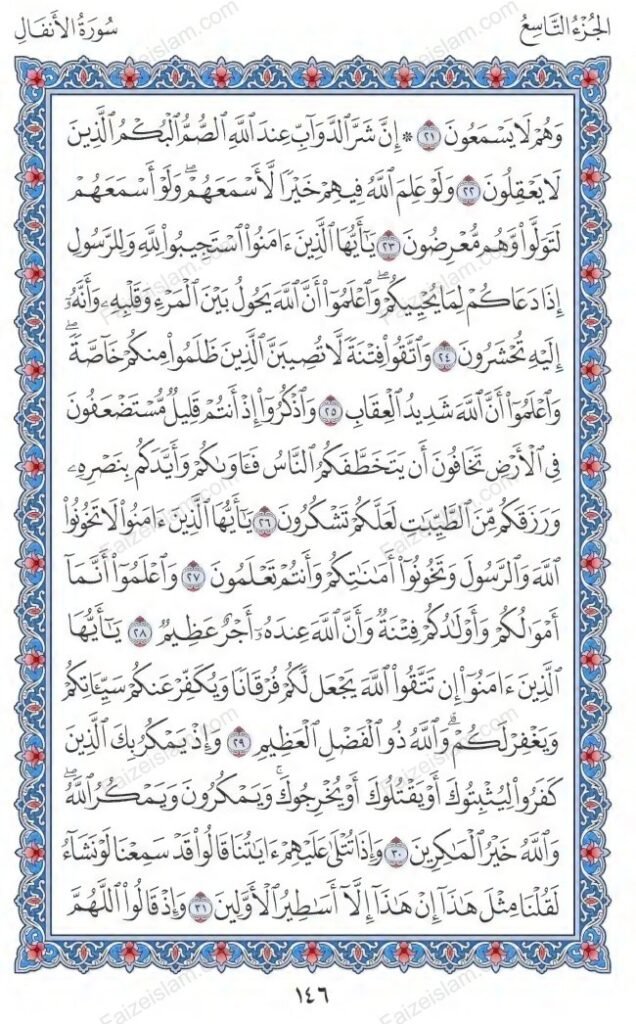 الجُزْءُ التَّاسِعُ
سُورَةُ الأَنفَالِ
وَهُمْ لَا يَسْمَعُونَ ٢١ ۞ إِنَّ شَرَّ ٱلدَّوَآبِّ عِندَ ٱللَّهِ ٱلصُّمُّ ٱلْبُكْمُ ٱلَّذِينَ
لَا يَعْقِلُونَ ٢٢ وَلَوْ عَلِمَ ٱللَّهُ فِيهِمْ خَيْرًا لَّأَسْمَعَهُمْ ۖ وَلَوْ أَسْمَعَهُمْ
لَتَوَلَّوا۟ وَّهُم مُّعْرِضُونَ ٢٣ يَـٰٓأَيُّهَا ٱلَّذِينَ ءَامَنُوا۟ ٱسْتَجِيبُوا۟ لِلَّهِ وَلِلرَّسُولِ
إِذَا دَعَاكُمْ لِمَا يُحْيِيكُمْ ۖ وَٱعْلَمُوٓا۟ أَنَّ ٱللَّهَ يَحُولُ بَيْنَ ٱلْمَرْءِ وَقَلْبِهِۦ وَأَنَّهُۥٓ
إِلَيْهِ تُحْشَرُونَ ٢٤ وَٱتَّقُوا۟ فِتْنَةً لَّا تُصِيبَنَّ ٱلَّذِينَ ظَلَمُوا۟ مِنكُمْ خَآصَّةً ۖ
وَٱعْلَمُوٓا۟ أَنَّ ٱللَّهَ شَدِيدُ ٱلْعِقَابِ ٢٥ وَٱذْكُرُوٓا۟ إِذْ أَنتُمْ قَلِيلٌ مُّسْتَضْعَفُونَ
فِى ٱلْأَرْضِ تَخَافُونَ أَن يَتَخَطَّفَكُمُ ٱلنَّاسُ فَـَٔاوَىٰكُمْ وَأَيَّدَكُم بِنَصْرِهِۦ
وَرَزَقَكُم مِّنَ ٱلطَّيِّبَـٰتِ لَعَلَّكُمْ تَشْكُرُونَ ٢٦ يَـٰٓأَيُّهَا ٱلَّذِينَ ءَامَنُوا۟ لَا تَخُونُوا۟
ٱللَّهَ وَٱلرَّسُولَ وَتَخُونُوٓا۟ أَمَـٰنَـٰتِكُمْ وَأَنتُمْ تَعْلَمُونَ ٢٧ وَٱعْلَمُوٓا۟ أَنَّمَآ
أَمْوَٰلُكُمْ وَأَوْلَـٰدُكُمْ فِتْنَةٌ وَأَنَّ ٱللَّهَ عِندَهُۥٓ أَجْرٌ عَظِيمٌ ٢٨ يَـٰٓأَيُّهَا
ٱلَّذِينَ ءَامَنُوٓا۟ إِن تَتَّقُوا۟ ٱللَّهَ يَجْعَل لَّكُمْ فُرْقَانًا وَيُكَفِّرْ عَنكُمْ سَيِّـَٔاتِكُمْ
وَيَغْفِرْ لَكُمْ ۗ وَٱللَّهُ ذُو ٱلْفَضْلِ ٱلْعَظِيمِ ٢٩ وَإِذْ يَمْكُرُ بِكَ ٱلَّذِينَ
كَفَرُوا۟ لِيُثْبِتُوكَ أَوْ يَقْتُلُوكَ أَوْ يُخْرِجُوكَ ۚ وَيَمْكُرُونَ وَيَمْكُرُ ٱللَّهُ ۖ
وَٱللَّهُ خَيْرُ ٱلْمَـٰكِرِينَ ٣٠ وَإِذَا تُتْلَىٰ عَلَيْهِمْ ءَايَـٰتُنَا قَالُوا۟ قَدْ سَمِعْنَا لَوْ نَشَآءُ
لَقُلْنَا مِثْلَ هَـٰذَآ إِنْ هَـٰذَآ إِلَّآ أَسَـٰطِيرُ ٱلْأَوَّلِينَ ٣١ وَإِذْ قَالُوا۟ ٱللَّهُمَّ
١٤٦
Faizeislam.com